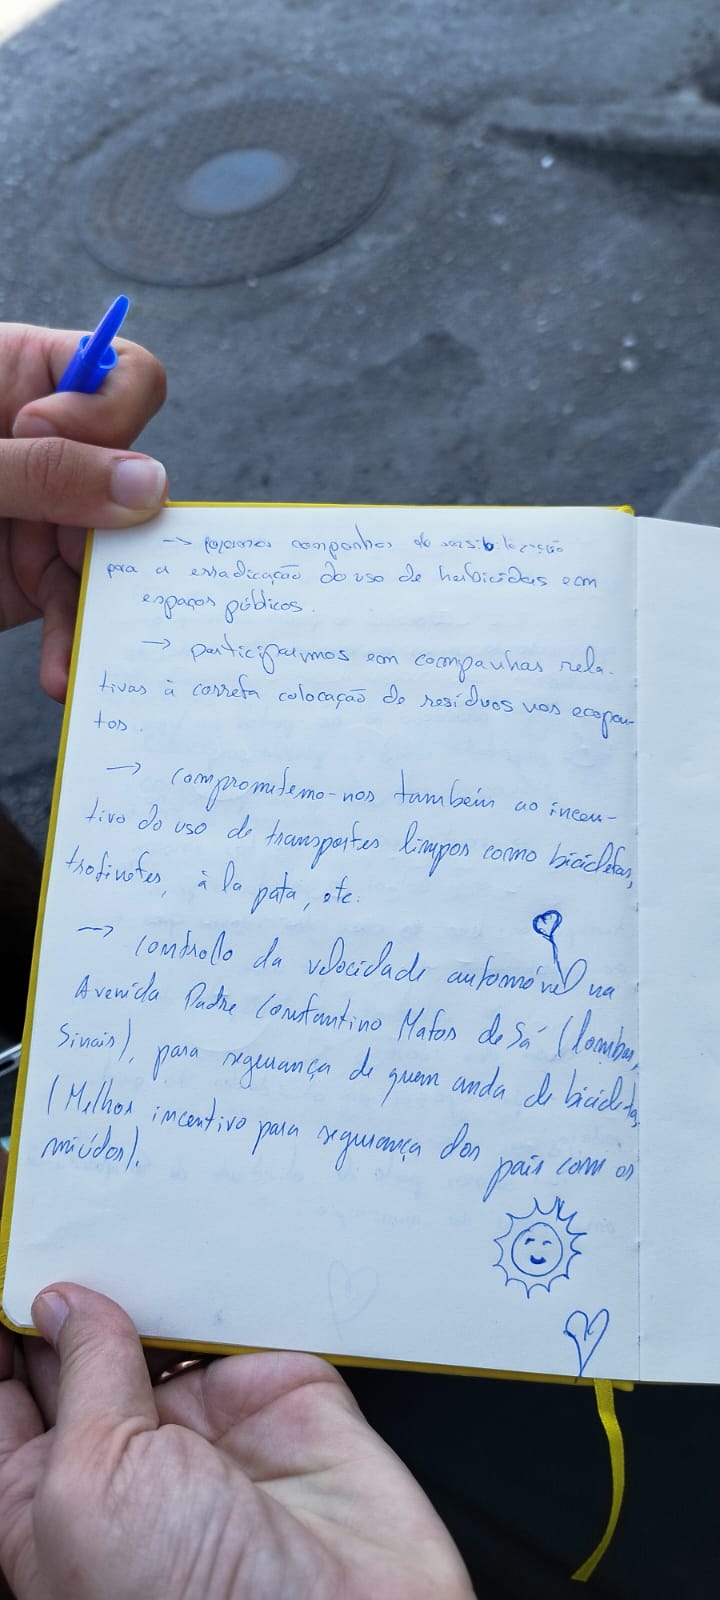 → façamos campanhas de sensibilização
para a erradicação do uso de herbicidas em
espaços públicos.
→ participarmos em campanhas rela-
tivas à correta colocação de resíduos nos ecopon-
tos.
→ comprometemo-nos também ao incen-
tivo do uso de transportes limpos como bicicletas,
trotinetes, à la pata, etc.
→ controlo da velocidade automóvel na
Avenida Padre Constantino Matos de Sá (lombas,
sinais), para segurança de quem anda de bicicleta,
(Melhor incentivo para segurança dos pais com os
miúdos).